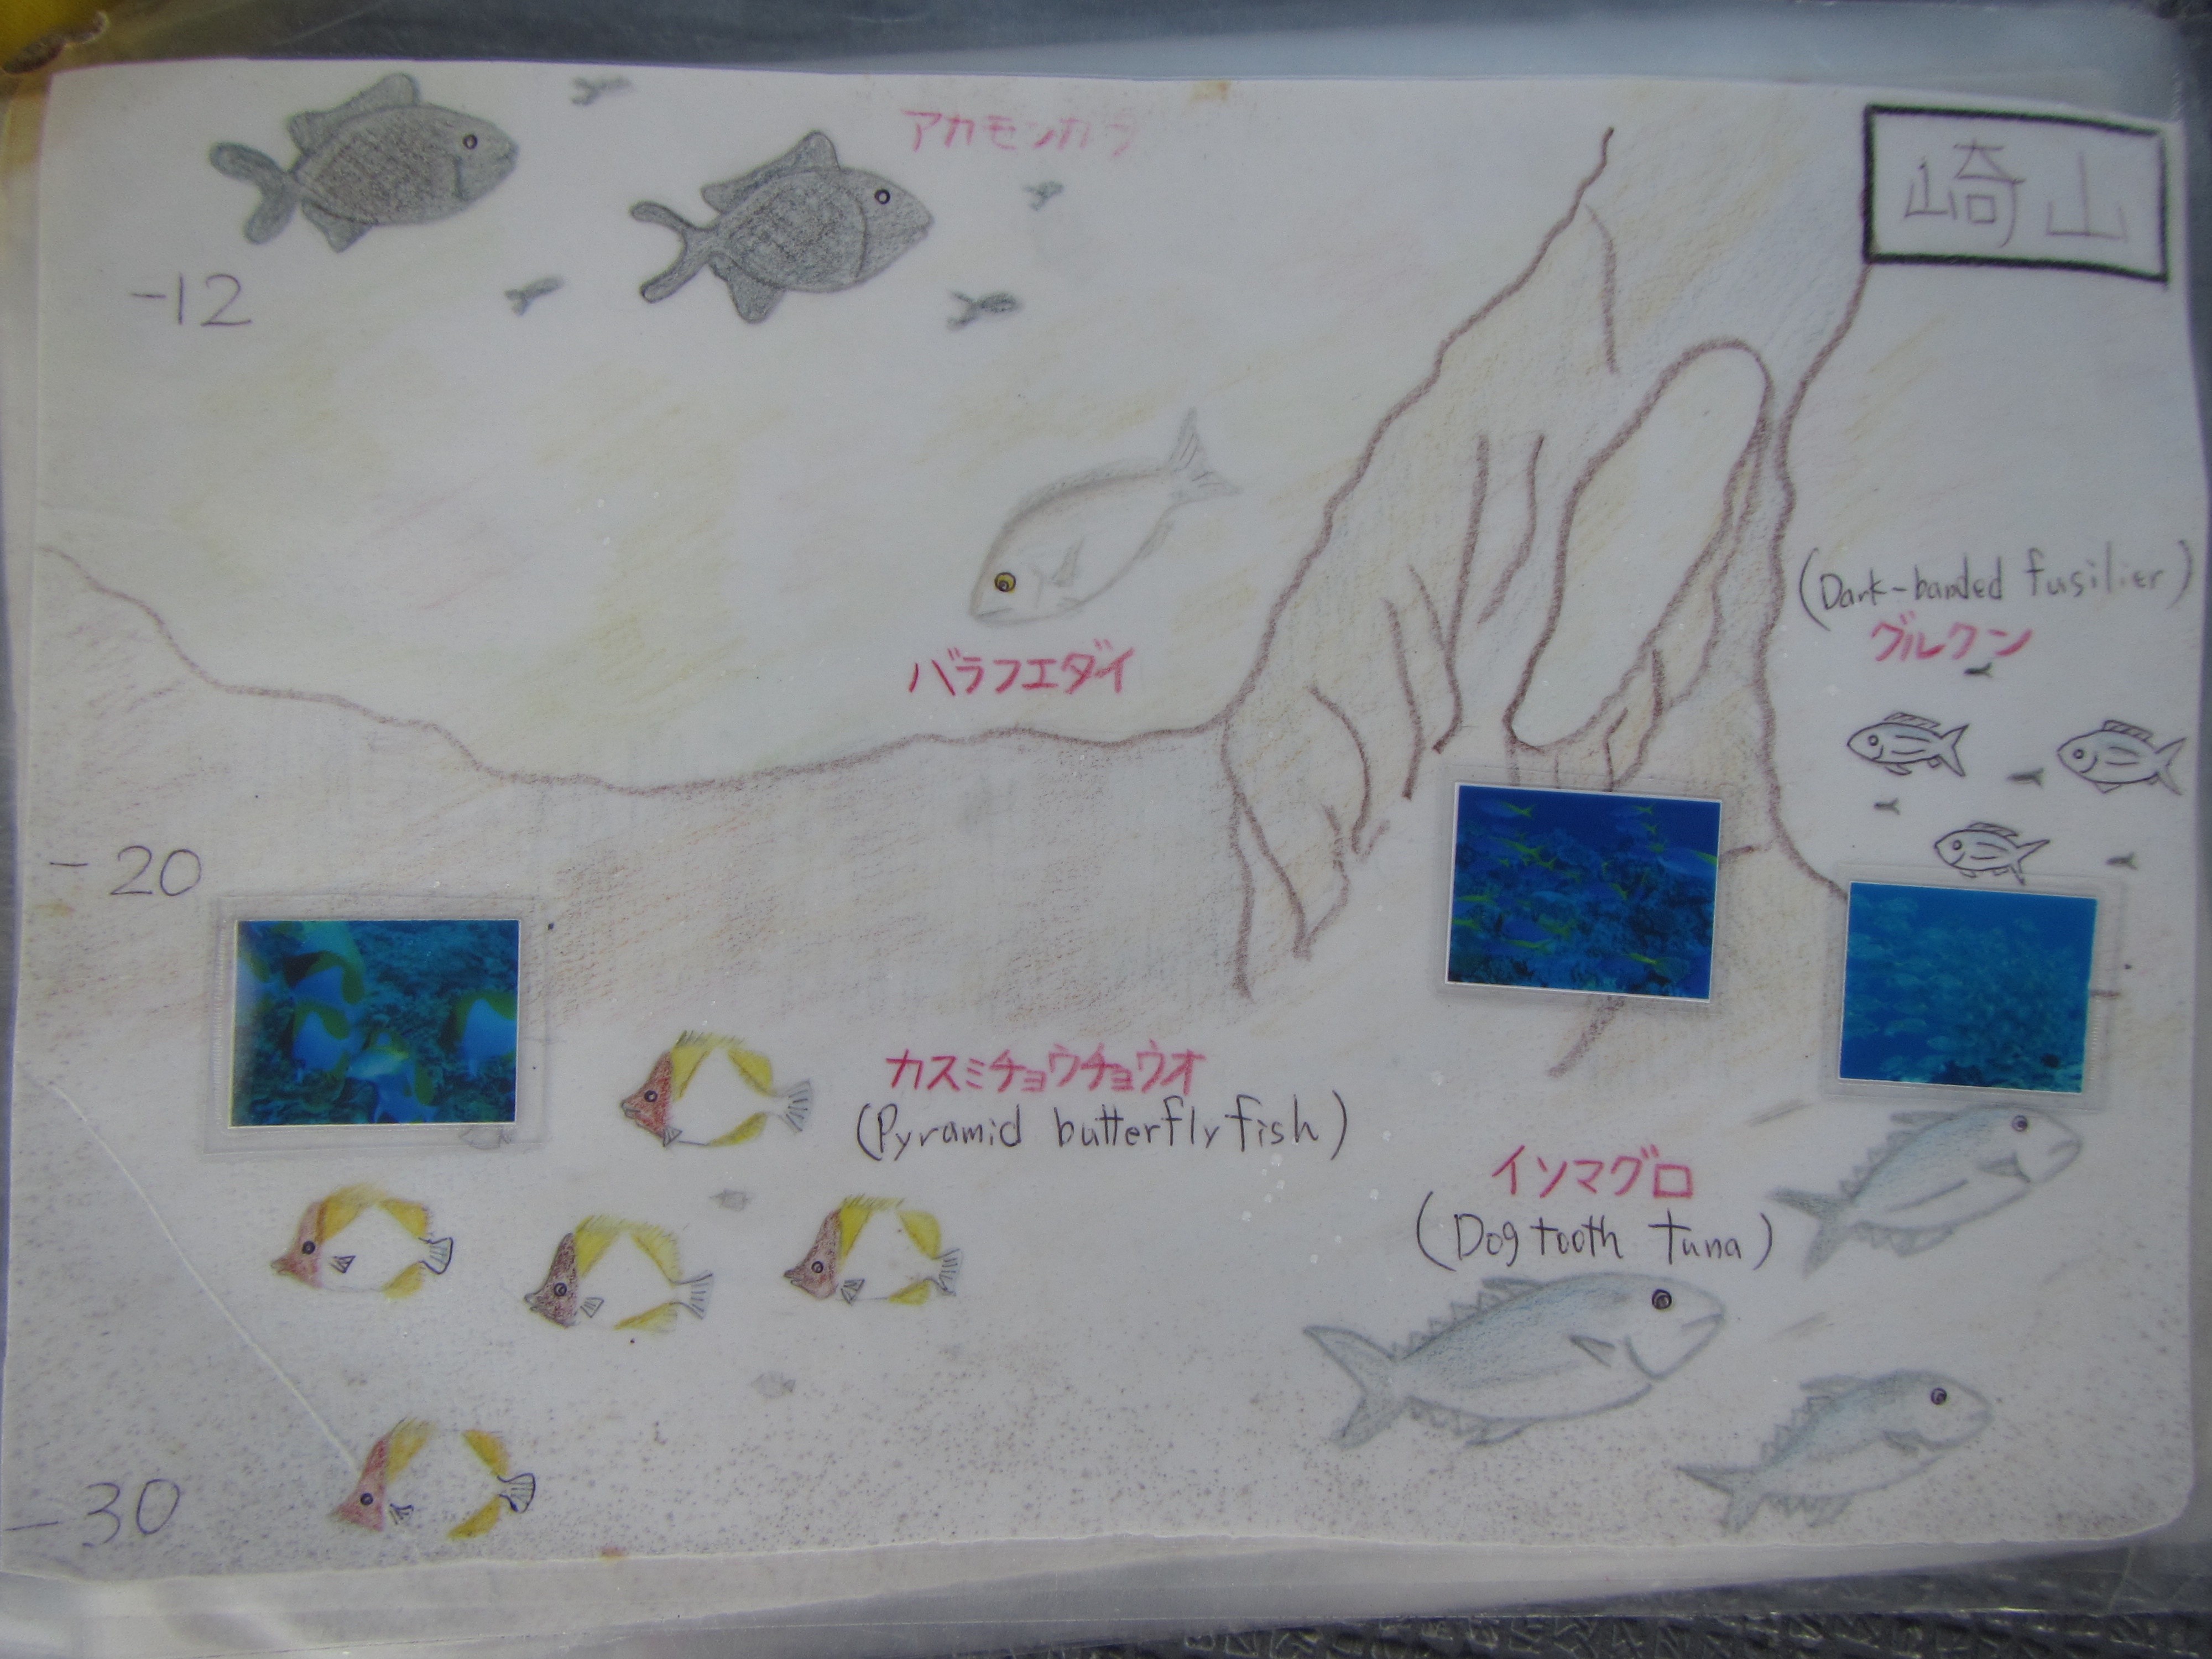 アカモンガラ
崎山
-12
(Dark-banded fusilier)
グルクン
バラフエダイ
-20
カスミチョウチョウオ
(Pyramid butterflyfish)
イソマグロ
(Dogtooth tuna)
-30